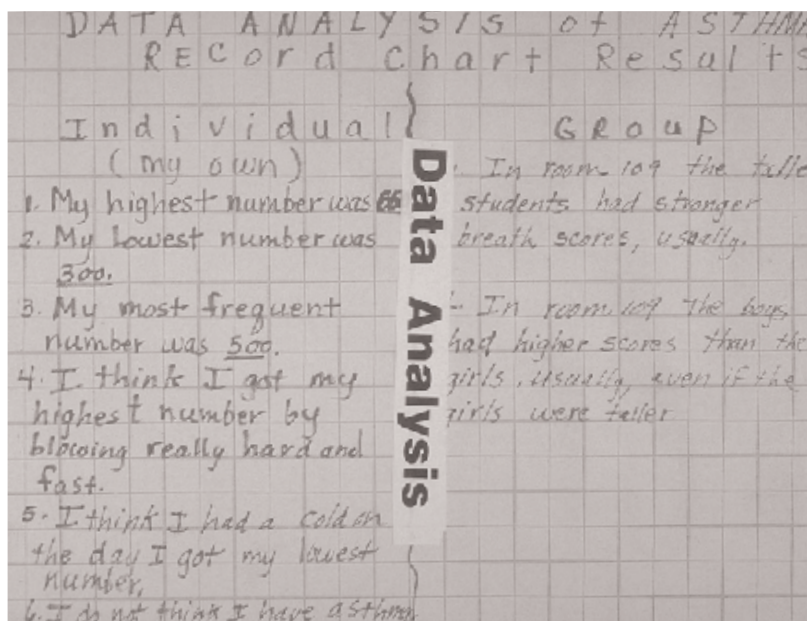 DATA ANALYSIS of ASTHMA
RECord Chart Results
Individual
(my own)
1. My highest number was
2. My Lowest number was
300.
3. My most frequent
number was 500.
4. I think I got my
highest number by
blowing really hard and
fast.
5. I think I had a cold on
the day I got my lowest
number,
6. I do not think I have asthma
Data Analysis
GRoup
In room 109 the talle
students had stronger
breath scores, usually.
In room 109 the boys
had higher scores than the
girls, usually, even if the
girls were taller